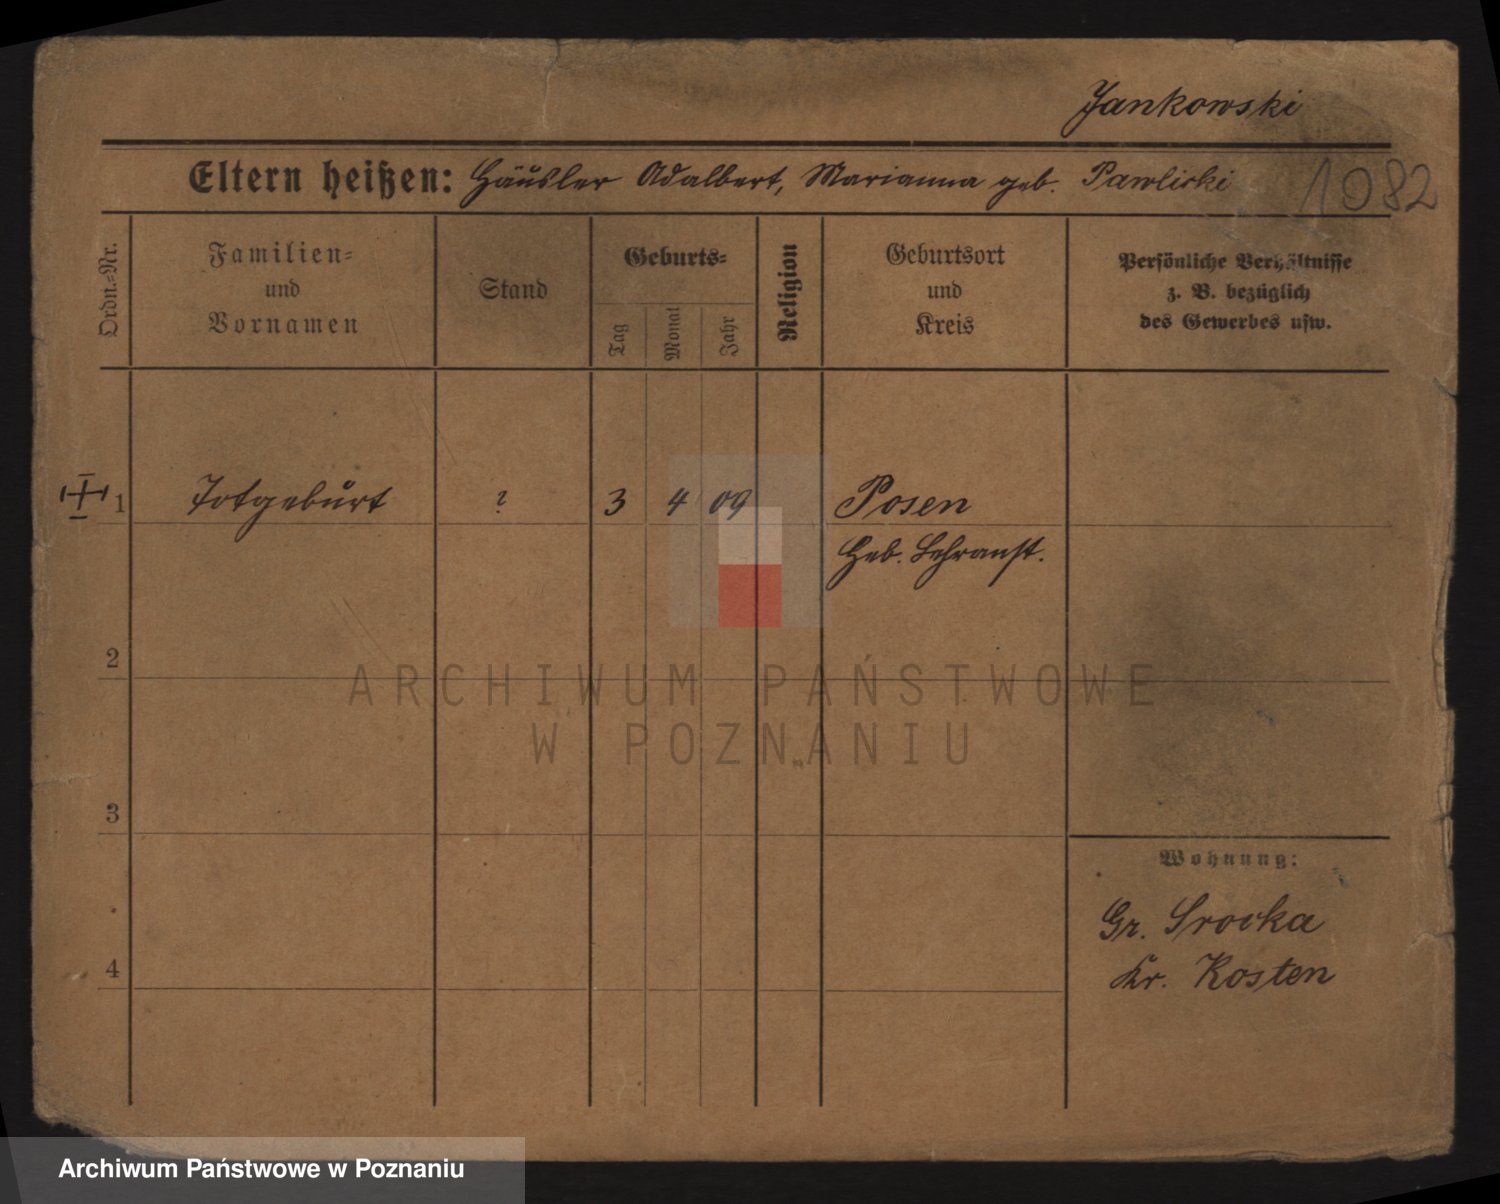 Jankowski
Eltern heißen: Häusler Adalbert, Marianna geb. Pawlicki
1082
Ordn.-Nr.
Familien-
und
Vornamen
Stand
Geburts-
Tag
Monat
Jahr
Religion
Geburtsort
und
Kreis
Persönliche Verhältnisse
z. B. bezüglich
des Gewerbes usw.
1 Totgeburt ? 3 4 09 Posen
Heb. Lehranst.
2
ARCHIWUM PAŃSTWOWE
W POZNANIU
3
Wohnung:
Gr. Srocka
4
Kr. Kosten
Archiwum Państwowe w Poznaniu